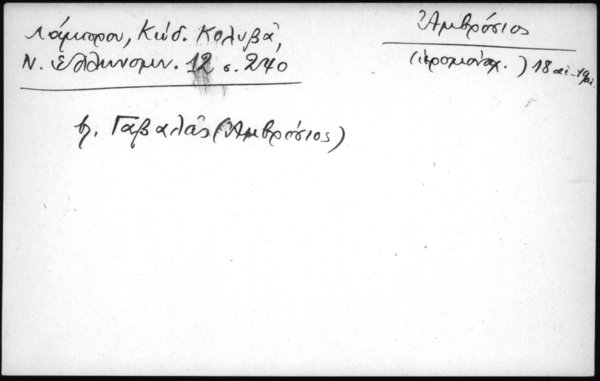 Λάμπρου, Κώδ. Κολυβᾶ,
Ν. Ἑλληνομν. 12 σ. 240
Ἀμβρόσιος
(ἱερομόναχ.) 18 αἰ.-19 αἰ.
βλ. Γαβαλᾶς (Ἀμβρόσιος)